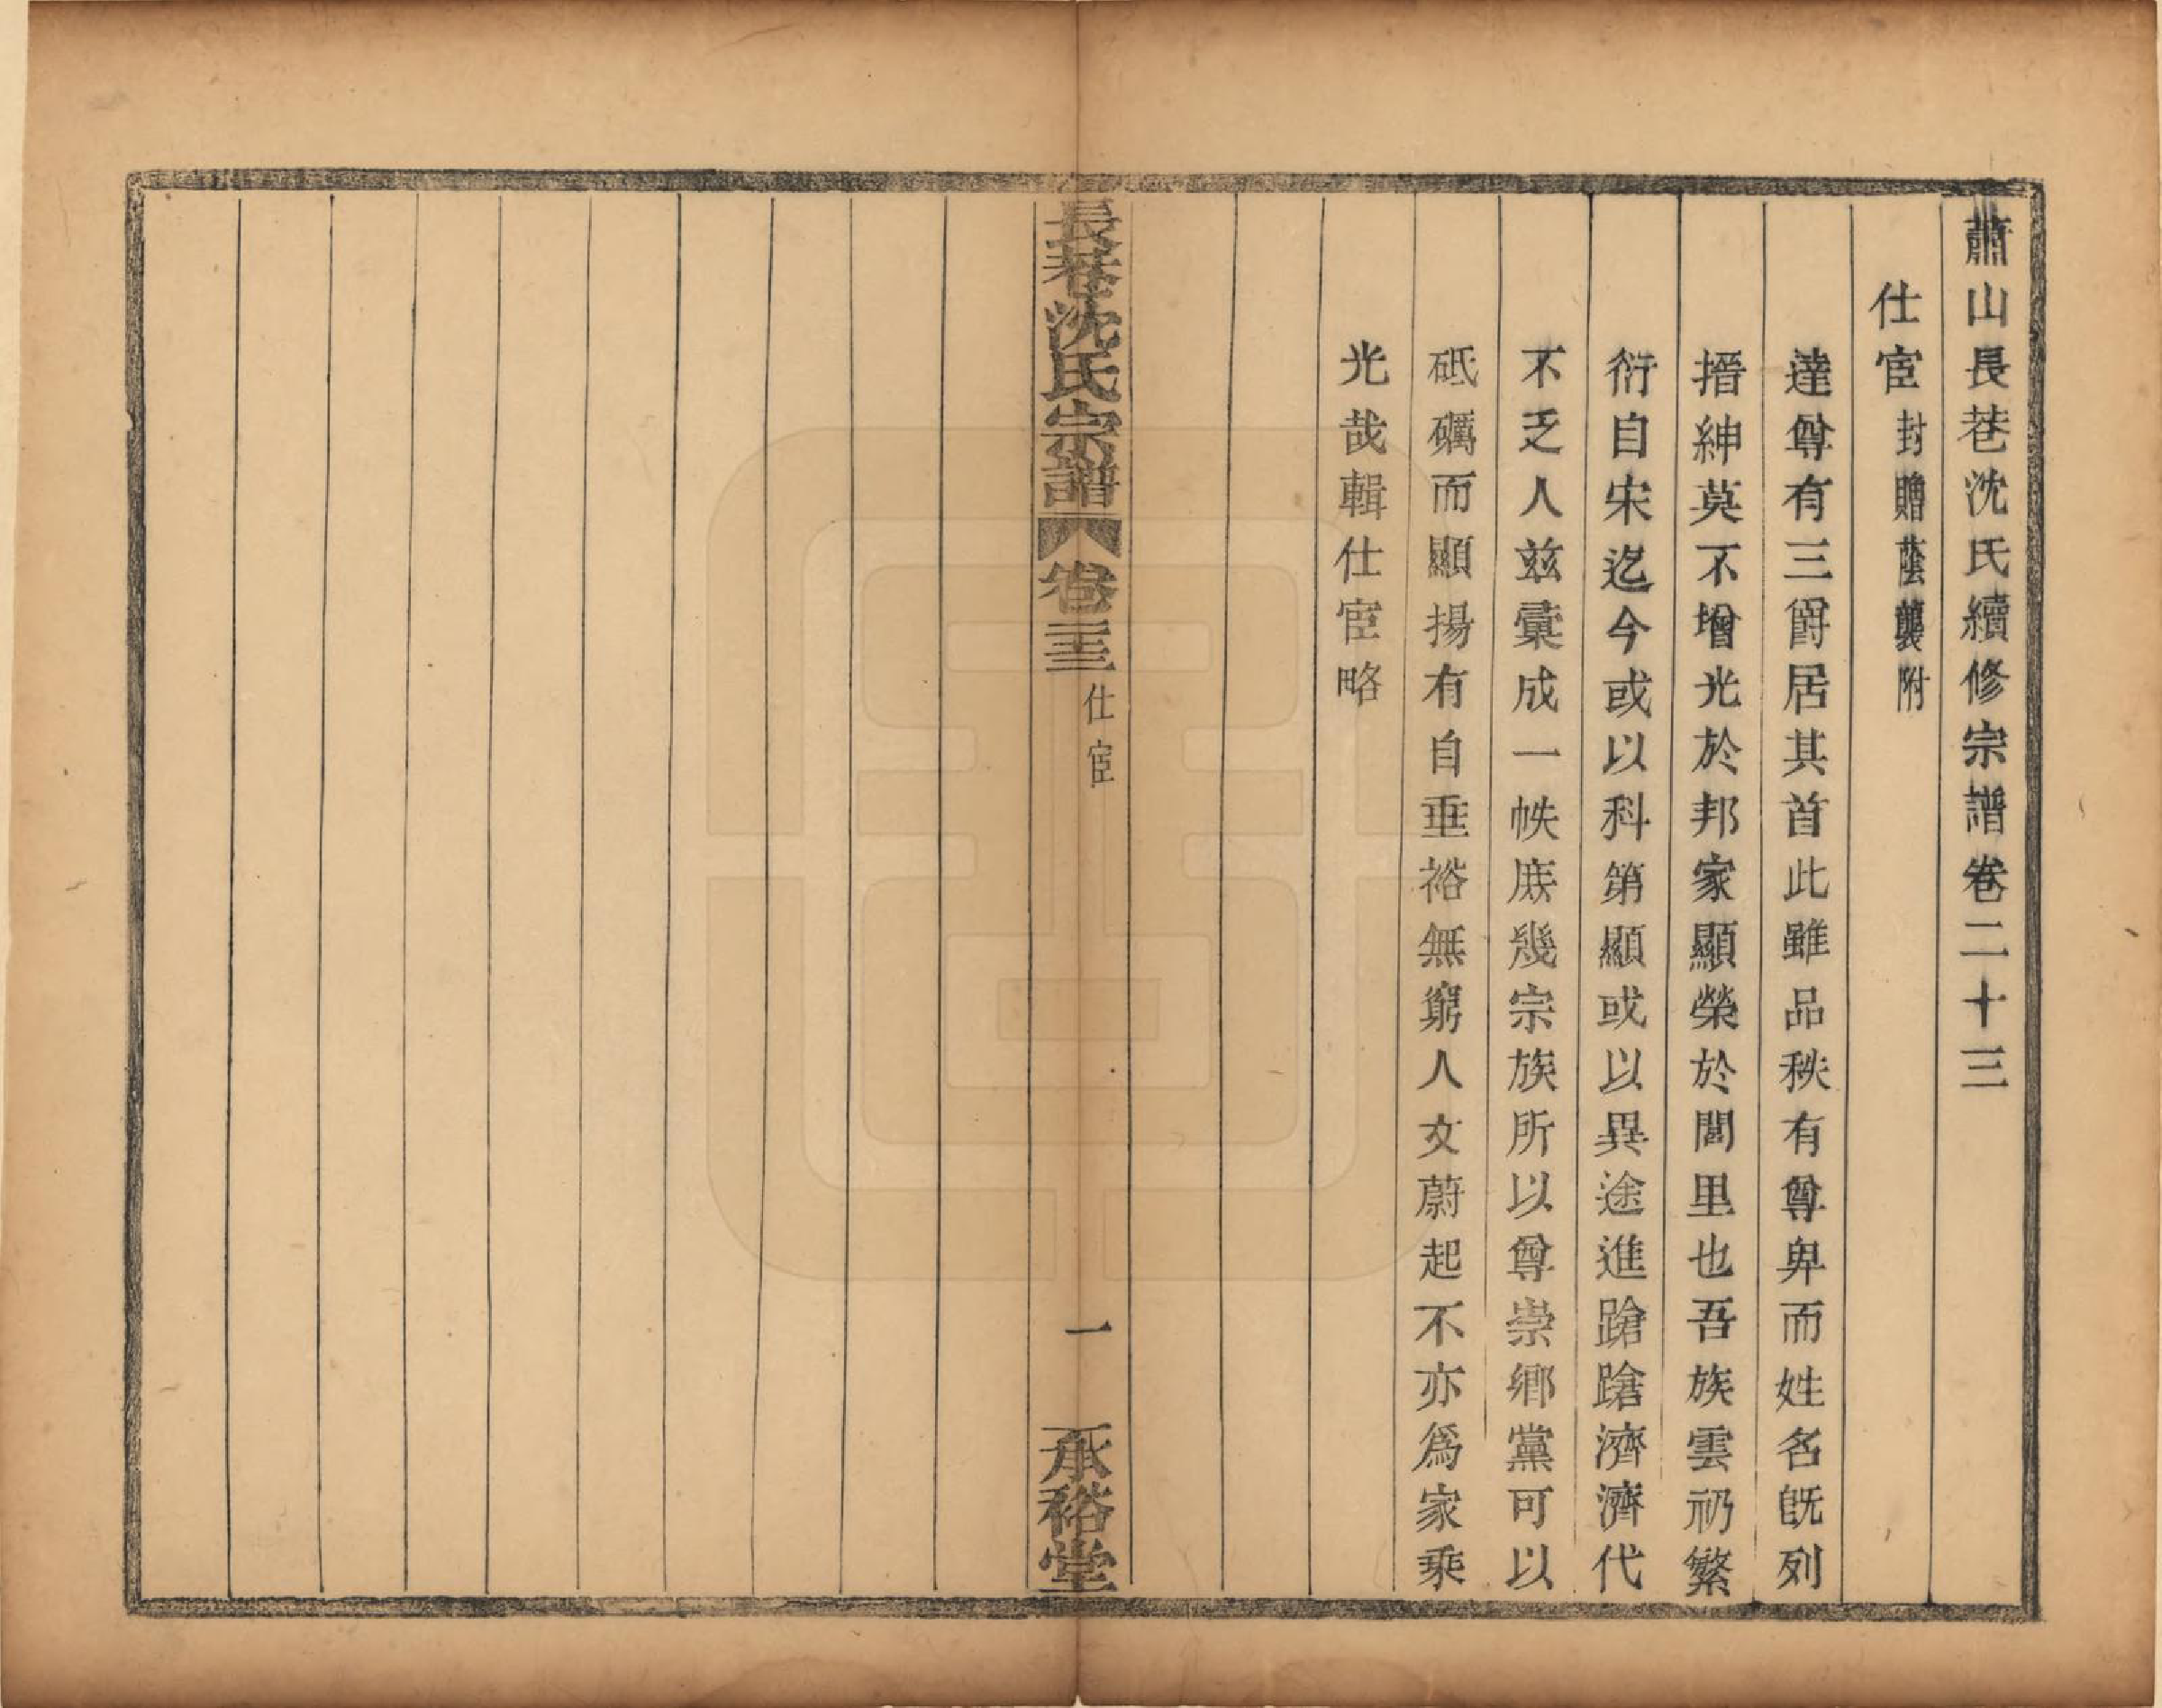 蕭山長巷沈氏續修宗譜卷二十三
仕宦封贈蔭襲附
達尊有三爵居其首此雖品秩有尊卑而姓名旣列
搢紳莫不增光於邦家顯榮於閭里也吾族雲礽繁
衍自宋迄今或以科第顯或以異途進蹌蹌濟濟代
不乏人玆彙成一帙庶幾宗族所以尊崇鄉黨可以
砥礪而顯揚有自垂裕無窮人文蔚起不亦爲家乘
光哉輯仕宦略
長巷沈氏宗譜 卷二十三 仕宦 一 承裕堂